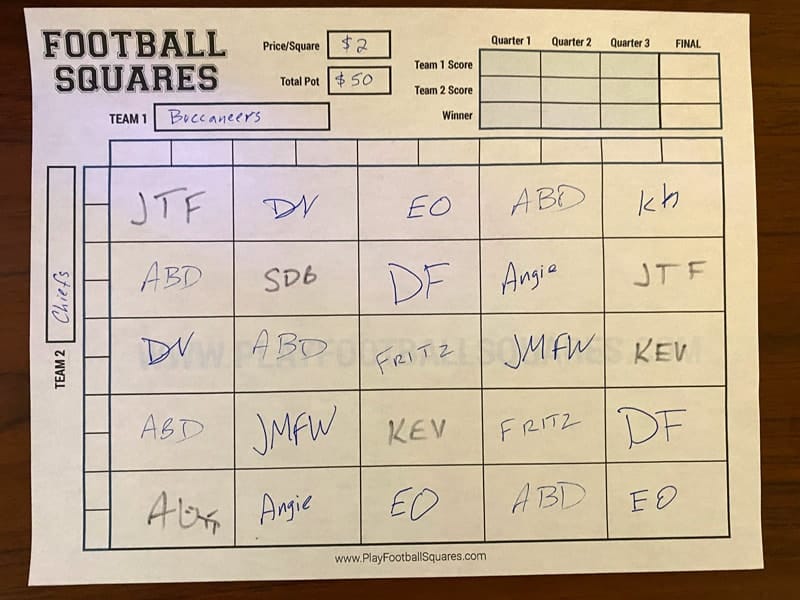 FOOTBALL
SQUARES
Price/Square $2
Total Pot $50
TEAM 1 Buccaneers
Quarter 1 Quarter 2 Quarter 3 FINAL
Team 1 Score
Team 2 Score
Winner
TEAM 2 Chiefs
JTF DN EO ABD Kh
ABD SDB DF Angie JTF
DN ABD FRITZ JMFW KEV
ABD JMFW KEV FRITZ DF
Angie EO ABD EO
WWW.PLAYFOOTBALLSQUARES.COM
www.PlayFootballSquares.com